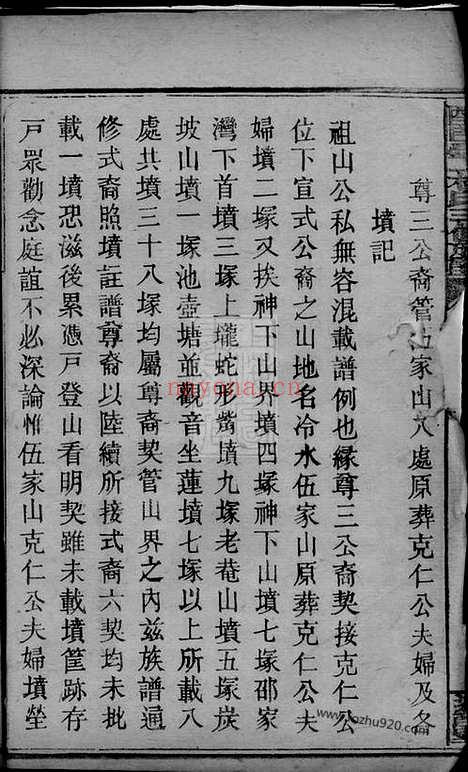 尊三公裔管伍家山八處原葬克仁公夫婦及各
墳記
祖山公私無容混載譜例也緣尊三公裔契接克仁公
位下宣式公裔之山地名冷水伍家山原葬克仁公夫
婦墳二塚又挨神下山界墳四塚神下山墳七塚邵家
灣下首墳三塚上壠蛇形嘴墳九塚老菴山墳五塚炭
坡山墳一塚池壺塘並觀音坐蓮墳七塚以上所載八
處共墳三十八塚均屬尊裔契管山界之內茲族譜通
修式裔照墳註譜尊裔以陸續所接式裔六契均未批
載一墳恐滋後累憑戶登山看明契雖未載墳筐跡存
戶眾勸念庭誼不必深論惟伍家山克仁公夫婦墳塋
nayona.cn
www.kozhu920.com